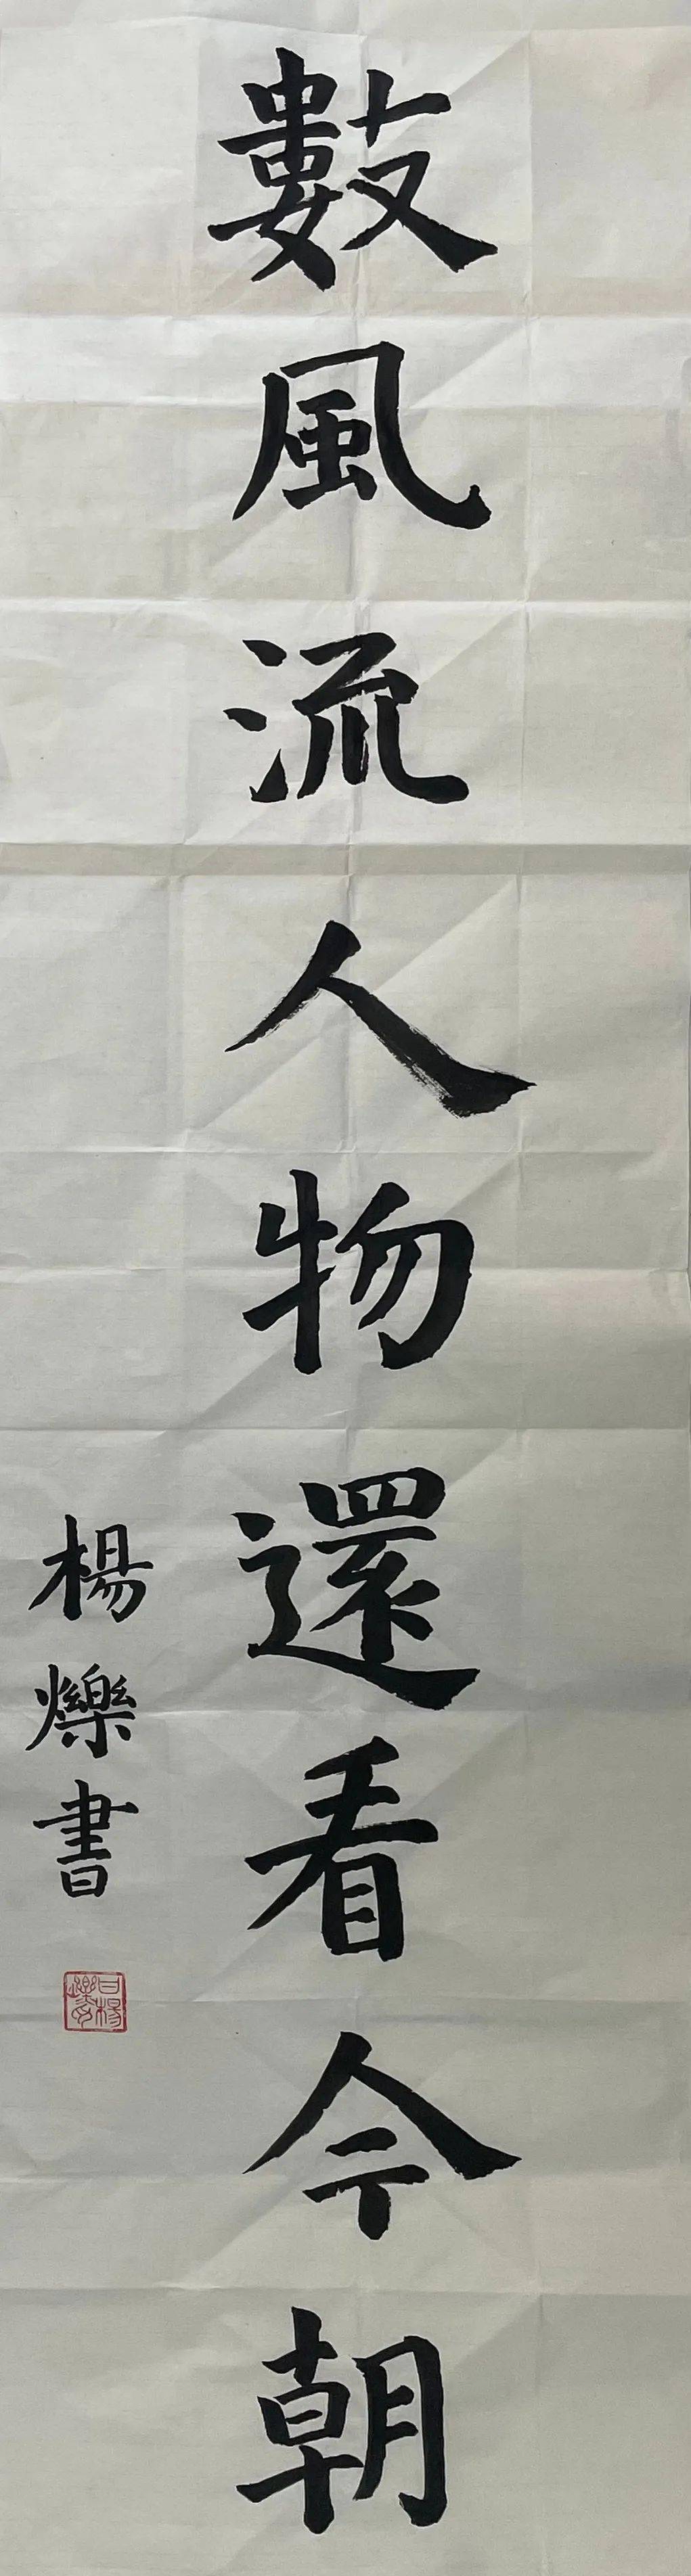 數風流人物還看今朝
楊爍書